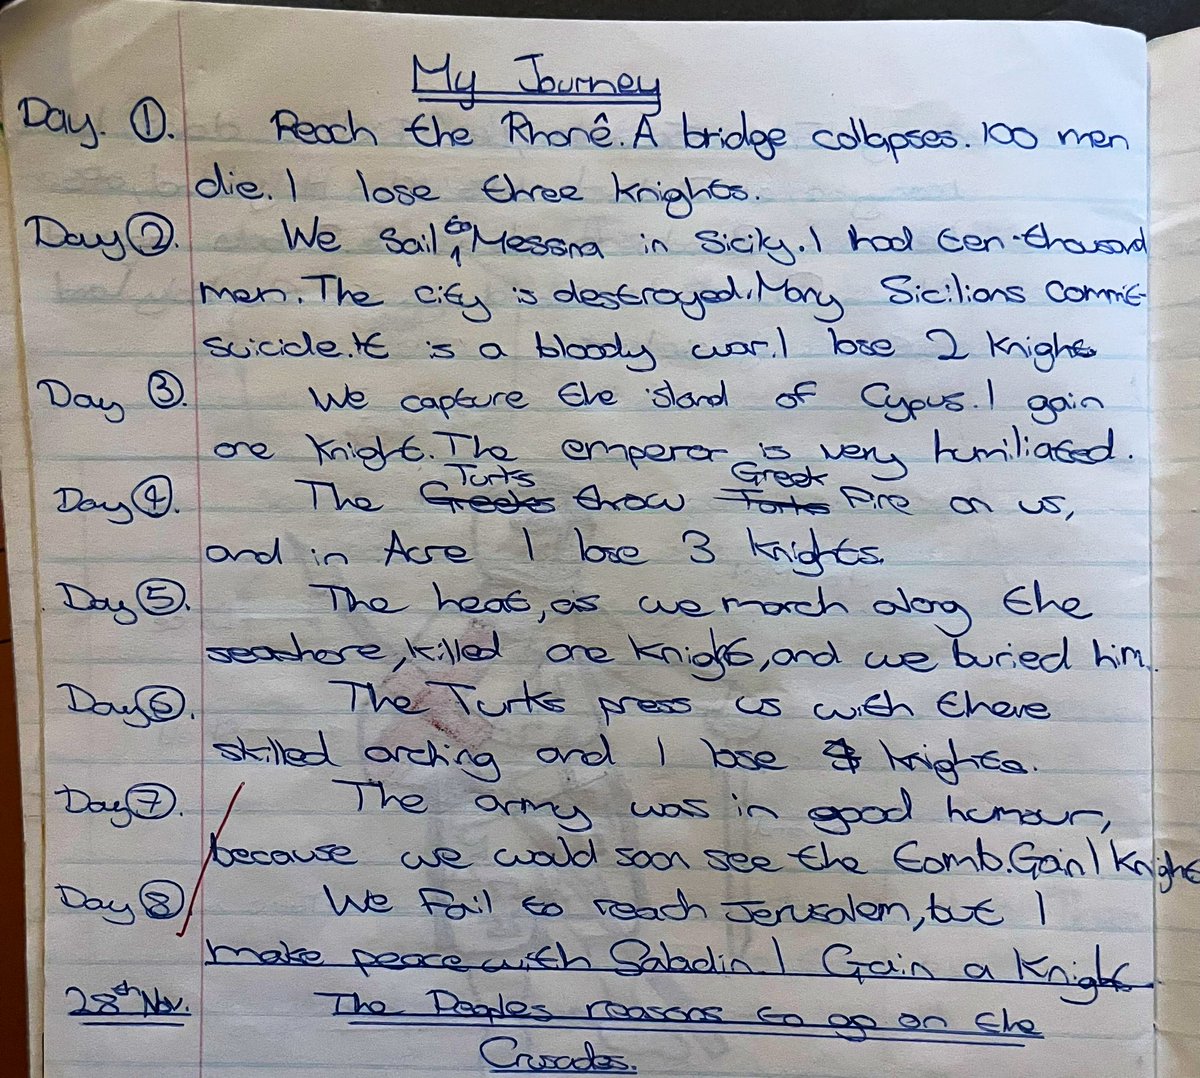 My Journey
Day. ①. Reach the Rhonê. A bridge collapses. 100 men
die. I lose three Knights.
Day ②. We Sail to Messna in Sicily. I had ten-thousand
men. The city is destroyed. Many Sicilians commit
suicide. It is a bloody war. I lose 2 Knights
Day ③. We capture the island of Cypus. I gain
one Knight. The emperor is very humiliated.
Day ④. The Greeks Turks throw Turks Greek Fire on us,
and in Acre I lose 3 Knights.
Day ⑤. The heat, as we march along the
seashore, killed one Knight, and we buried him.
Day ⑥. The Turks press us with there
skilled arching and I lose Knights.
Day ⑦. The army was in good humour,
because we would soon see the tomb. Gain 1 Knight
Day ⑧ We Fail to reach Jerusalem, but I
make peace with Saladin. I Gain a Knight
28th Nov. The Peoples reasons to go on the
Crusades.